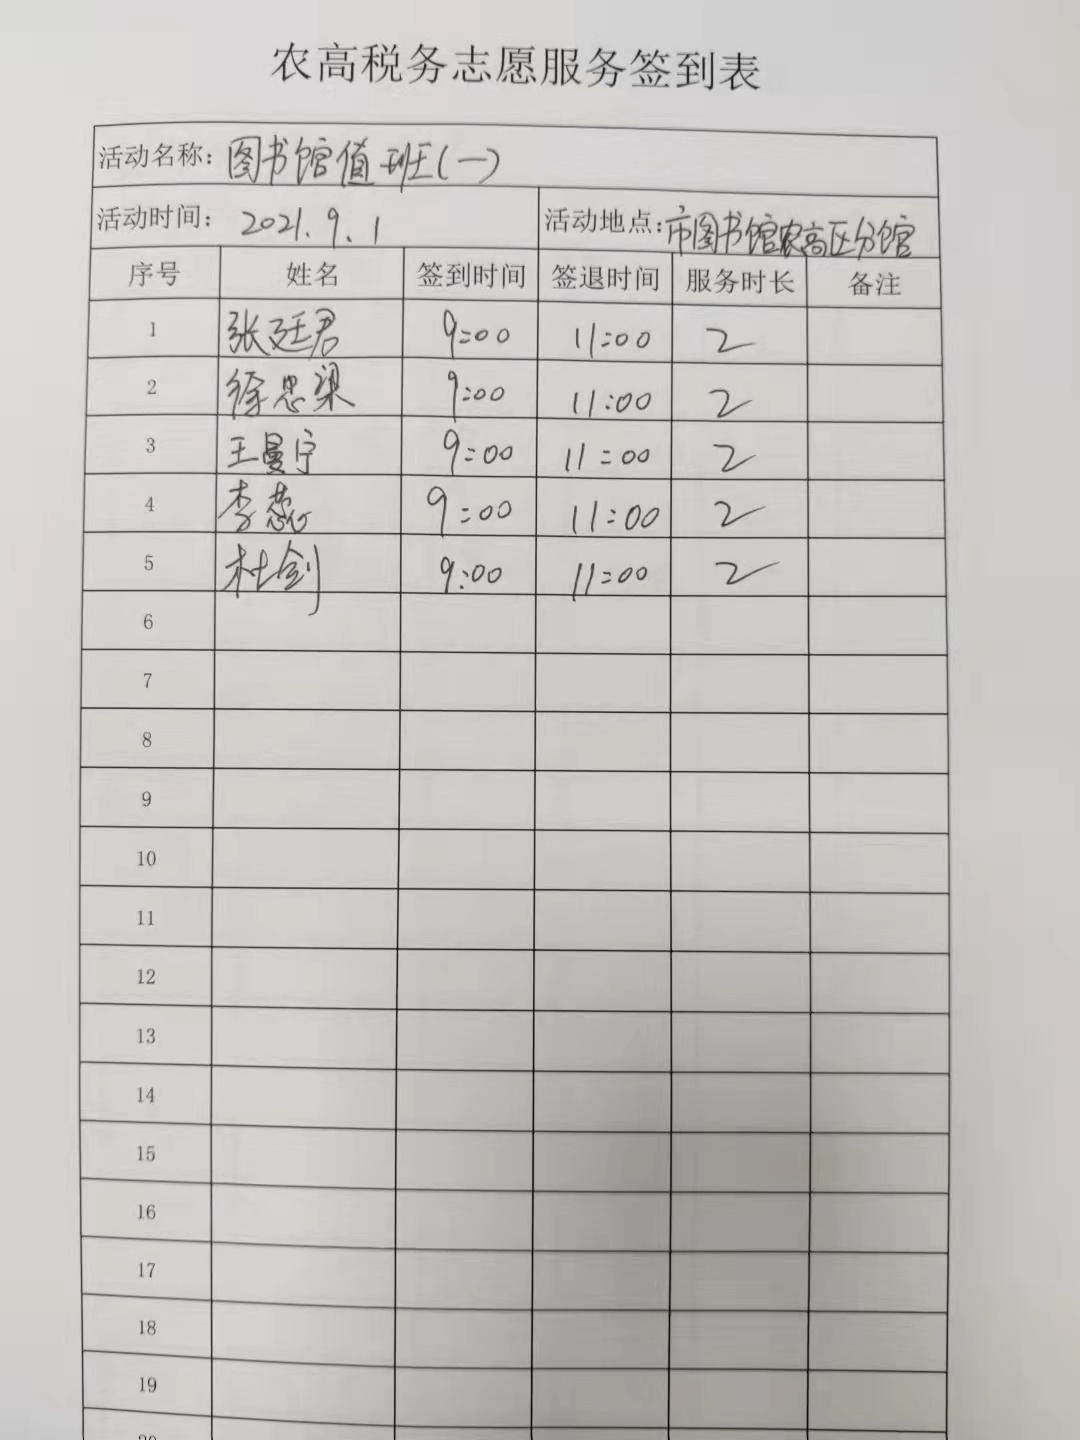 农高税务志愿服务签到表
活动名称：图书馆值班(一)
活动时间：2021.9.1 活动地点：市图书馆农高区分馆
序号 姓名 签到时间 签退时间 服务时长 备注
1 张廷君 9:00 11:00 2
2 徐思梁 9:00 11:00 2
3 王曼宁 9:00 11:00 2
4 李蕊 9:00 11:00 2
5 杜剑 9:00 11:00 2
6
7
8
9
10
11
12
13
14
15
16
17
18
19
20